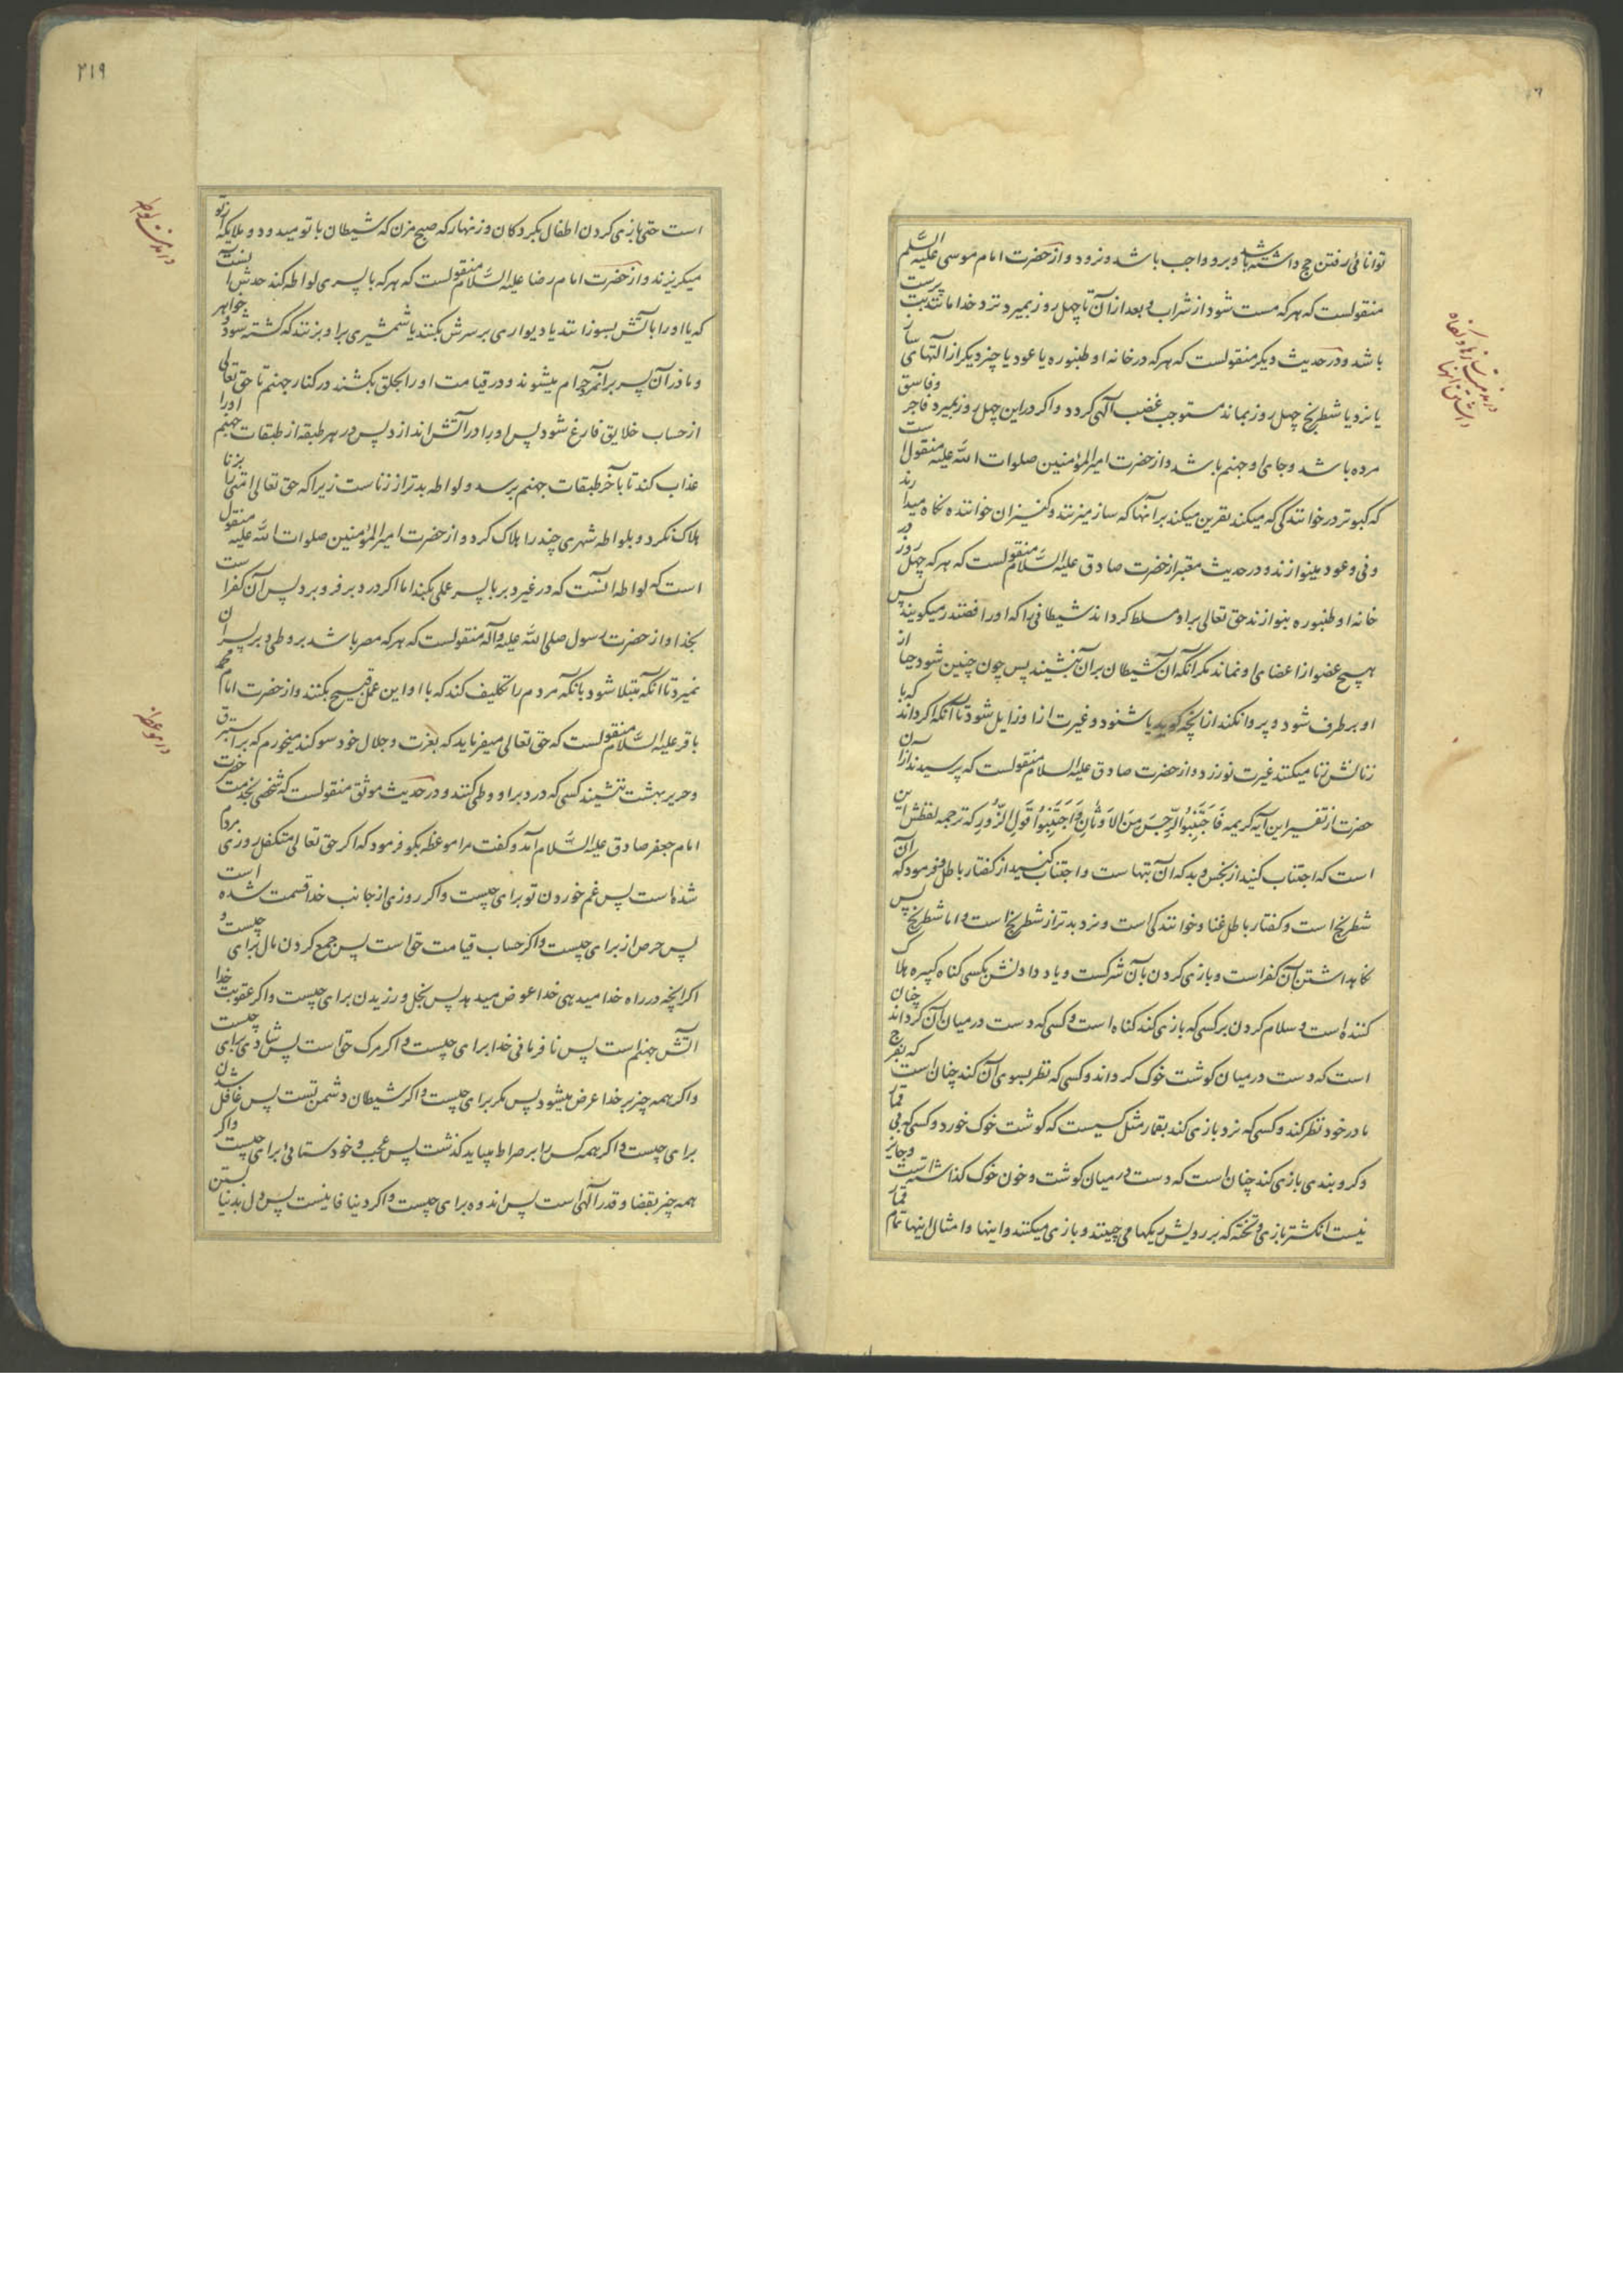 توانائی رفتن حج داشته باشد و برو واجب باشد و نرود و از حضرت امام موسی علیه السلم
منقولست که هر که مست شود از شراب و بعد از آن تا چهل روز بمیرد نزد خدا مانند بت پرست
باشد و در حدیث دیکر منقولست که هر که در خانه او طنبوره یا عود یا چیز دیکر از آلتهای ساز
یا نرد یا شطرنج چهل روز بماند مستوجب غضب آلهی کردد و اکر در این چهل روز بمیرد فاجر و فاسق
مرده باشد و جای او جهنم باشد و از حضرت امیرالمؤمنین صلوات الله علیه منقولست
که کبوتر در خوانندکی که میکند نفرین میکند بر آنها که ساز میزنند و کنیزان خواننده نکاه میدارند
و نی و عود مینوازند و در حدیث معتبر از حضرت صادق علیه السلام منقولست که هر که چهل روز در
خانه او طنبوره بنوازند حق تعالی بر او مسلط کرداند شیطانی را که او را قفندر میکویند پس
هیچ عضو از اعضای او نماند مکر آنکه آن شیطان بر آن بنشیند پس چون چنین شود حیا از
او بر طرف شود و پروا نکند از آنچه کوید یا شنود و غیرت از او زایل شود تا آنکه اکر داند که با
زنانش زنا میکنند غیرت نورزد و از حضرت صادق علیه السلام منقولست که پرسیدند از آن
حضرت از تفسیر این آیه کریمه فَاجْتَنِبُوا الرِّجْسَ مِنَ الاَوْثَانِ وَاجْتَنِبُوا قَوْلَ الزُّورِ که ترجمه لفظش این
است که اجتناب کنید از نجس و بد که آن بتها است و اجتناب کنید از کفتار باطل فرمود که آن
شطرنج است و کفتار باطل غنا و خوانندکی است و نرد بدتر از شطرنج است و اما شطرنج پس
نکاهداشتن آن کفر است و بازی کردن بآن شرکست و یاد دادنش بکسی کناه کبیره هلاک
کننده است و سلام کردن بر کسی که بازی کند کناه است و کسی که دست در میان آن کرداند چنان
است که دست در میان کوشت خوک کرداند و کسی که نظر بسوی آن کند چنان است که بفرج
مادر خود نظر کند و کسی که نرد بازی کند بقمار مثل کسیست که کوشت خوک خورد و کسی که بی قمار
و کروبندی بازی کند چنان است که دست در میان کوشت و خون خوک کذاشته است و جایز
نیست انکشتر بازی و تخته که بر رویش ریکها می چینند و بازی میکنند و اینها و امثال اینها تمام قمار
در مذمت
۲۱۹
است حتی بازی کردن اطفال بکردکان و زنهار که صبح مزن که شیطان با تو میدود و ملایکه از تو
میکریزند و از حضرت امام رضا علیه السلام منقولست که هر که با پسری لواطه کند حدش آنست
که یا او را بآتش بسوزانند یا دیواری بر سرش بکنند یا شمشیری بر او بزنند که کشته شود و خواهر
و مادر آن پسر بر آنمرد حرام میشوند و در قیامت او را بحلق بکشند در کنار جهنم تا حق تعالی
از حساب خلایق فارغ شود پس او را در آتش اندازد پس در هر طبقه از طبقات جهنم او را
عذاب کند تا بآخر طبقات جهنم برسد و لواطه بدتر از زناست زیرا که حق تعالی امتی را بزنا
هلاک نکرد و بلواطه شهری چند را هلاک کرد و از حضرت امیرالمؤمنین صلوات الله علیه منقول
است که لواطه آنست که در غیر دبر با پسر عملی بکند اما اکر در دبر فرو برد پس آن کفر است
بخدا و از حضرت رسول صلی الله علیه وآله منقولست که هر که مصر باشد بر وطی دبر پسران
نمیرد تا آنکه مبتلا شود بآنکه مردم را تکلیف کند که با او این عمل قبیح بکنند و از حضرت امام محمد
باقر علیه السلام منقولست که حق تعالی میفرماید که بعزت و جلال خود سوکند میخورم که بر استبرق
و حریر بهشت ننشیند کسی که در دبر او وطی کنند و در حدیث موثق منقولست که شخصی بخدمت حضرت
امام جعفر صادق علیه السلام آمد و کفت مرا موعظه بکو فرمود که اکر حق تعالی متکفل روزی مردم
شده است پس غم خوردن تو برای چیست و اکر روزی از جانب خدا قسمت شده است
پس حرص از برای چیست و اکر حساب قیامت حق است پس جمع کردن مال برای چیست و
اکر آنچه در راه خدا میدهی خدا عوض میدهد پس بخل ورزیدن برای چیست و اکر عقوبت خدا
آتش جهنم است پس نافرمانی خدا برای چیست و اکر مرک حق است پس شادی برای چیست
و اکر همه چیز بر خدا عرض میشود پس مکر برای چیست و اکر شیطان دشمن تست پس غافل شدن
برای چیست و اکر همه کس را بر صراط میباید کذشت پس عجب و خودستائی برای چیست و اکر
همه چیز بقضا و قدر آلهی است پس اندوه برای چیست و اکر دنیا فانیست پس دل بدنیا بستن
در مذمت لواطه
در موعظه